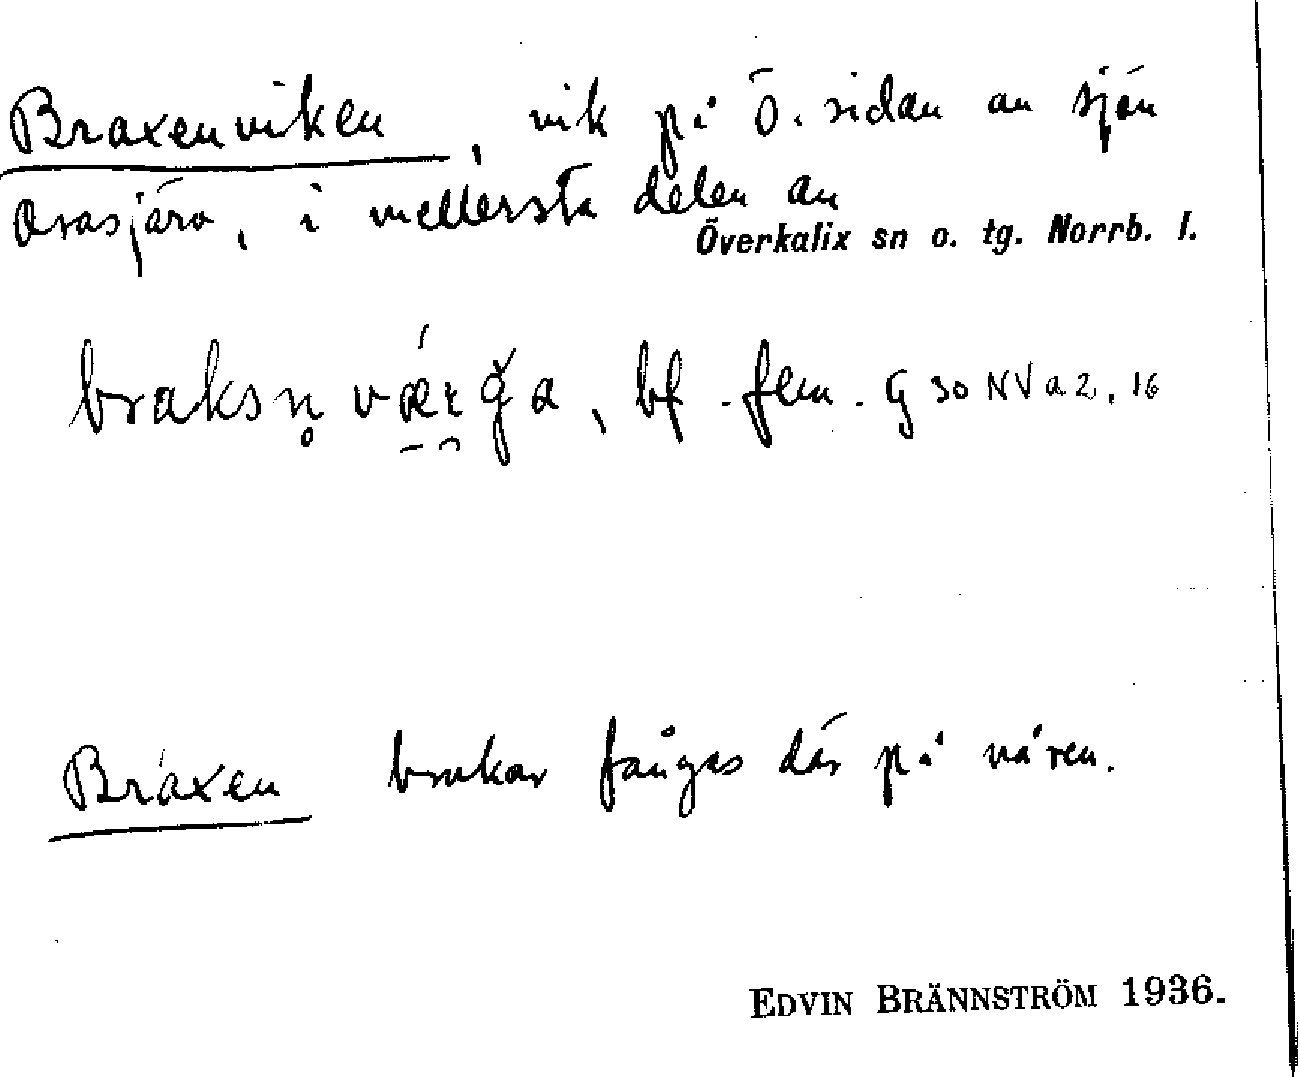 Braxenviken, vik på Ö. sidan av sjön
i mellersta delen av
Överkalix sn o. tg. Norrb. l.
bf. fem. G 30 NV a 2, 16
Braxen brukar fångas där på våren.
EDVIN BRÄNNSTRÖM 1936.